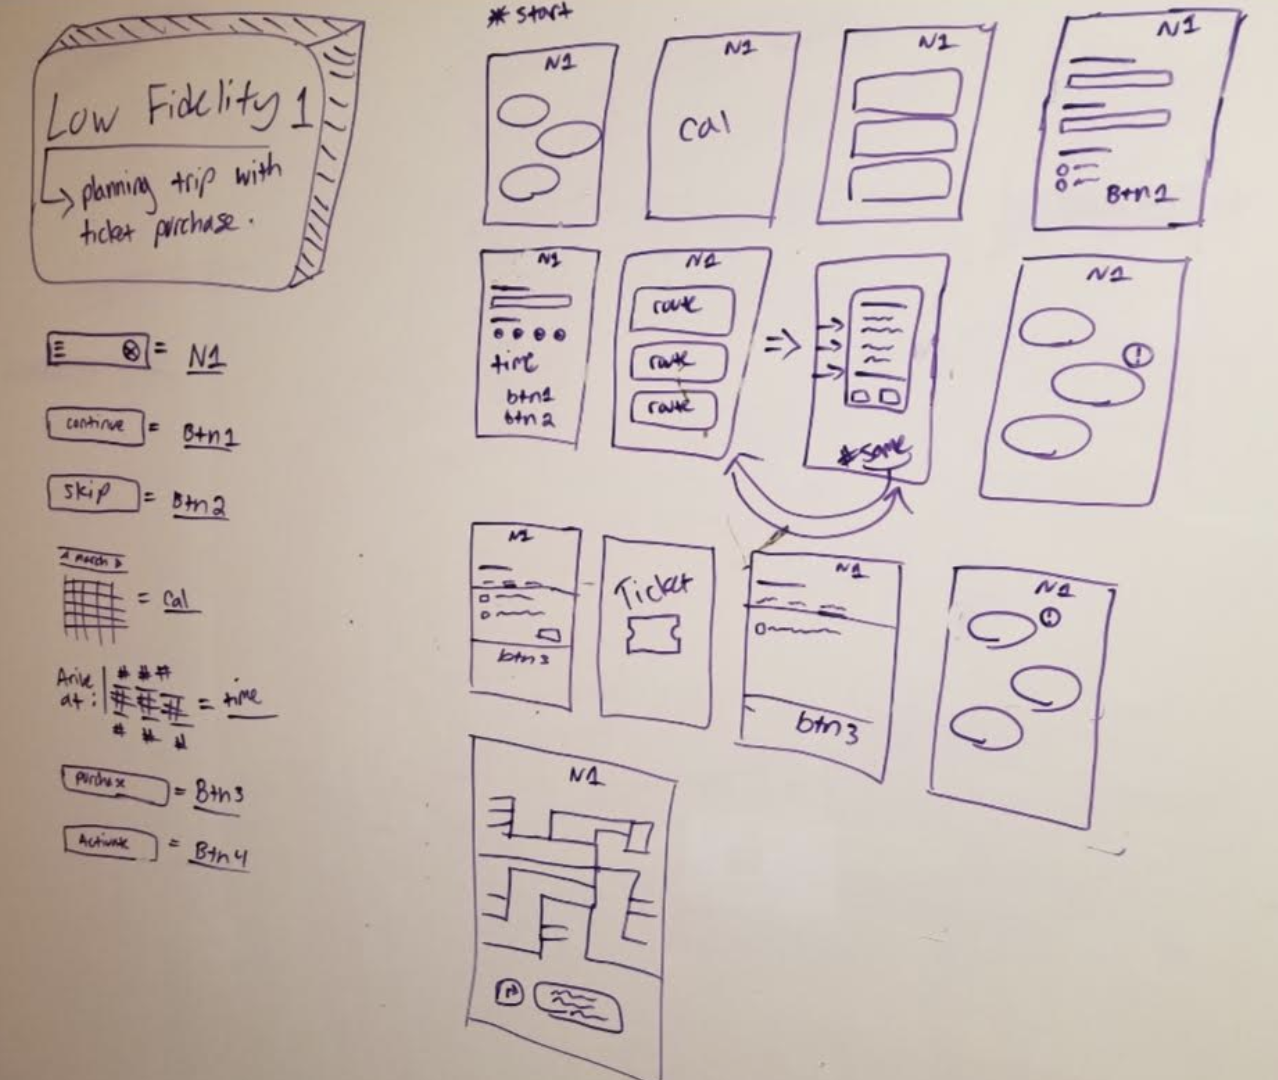 Low Fidelity 1
planning trip with
ticket purchase.
= N1
continue = Btn1
skip = Btn2
March
= Cal
Arive
at: = time
purchase = Btn3
Activate = Btn4
* start
N1
N1
Cal
N1
N1
Btn1
N1
time
btn1
btn2
N1
route
route
route
=>
* same
N1
!
N1
btn3
Ticket
N1
btn3
N1
!
N1